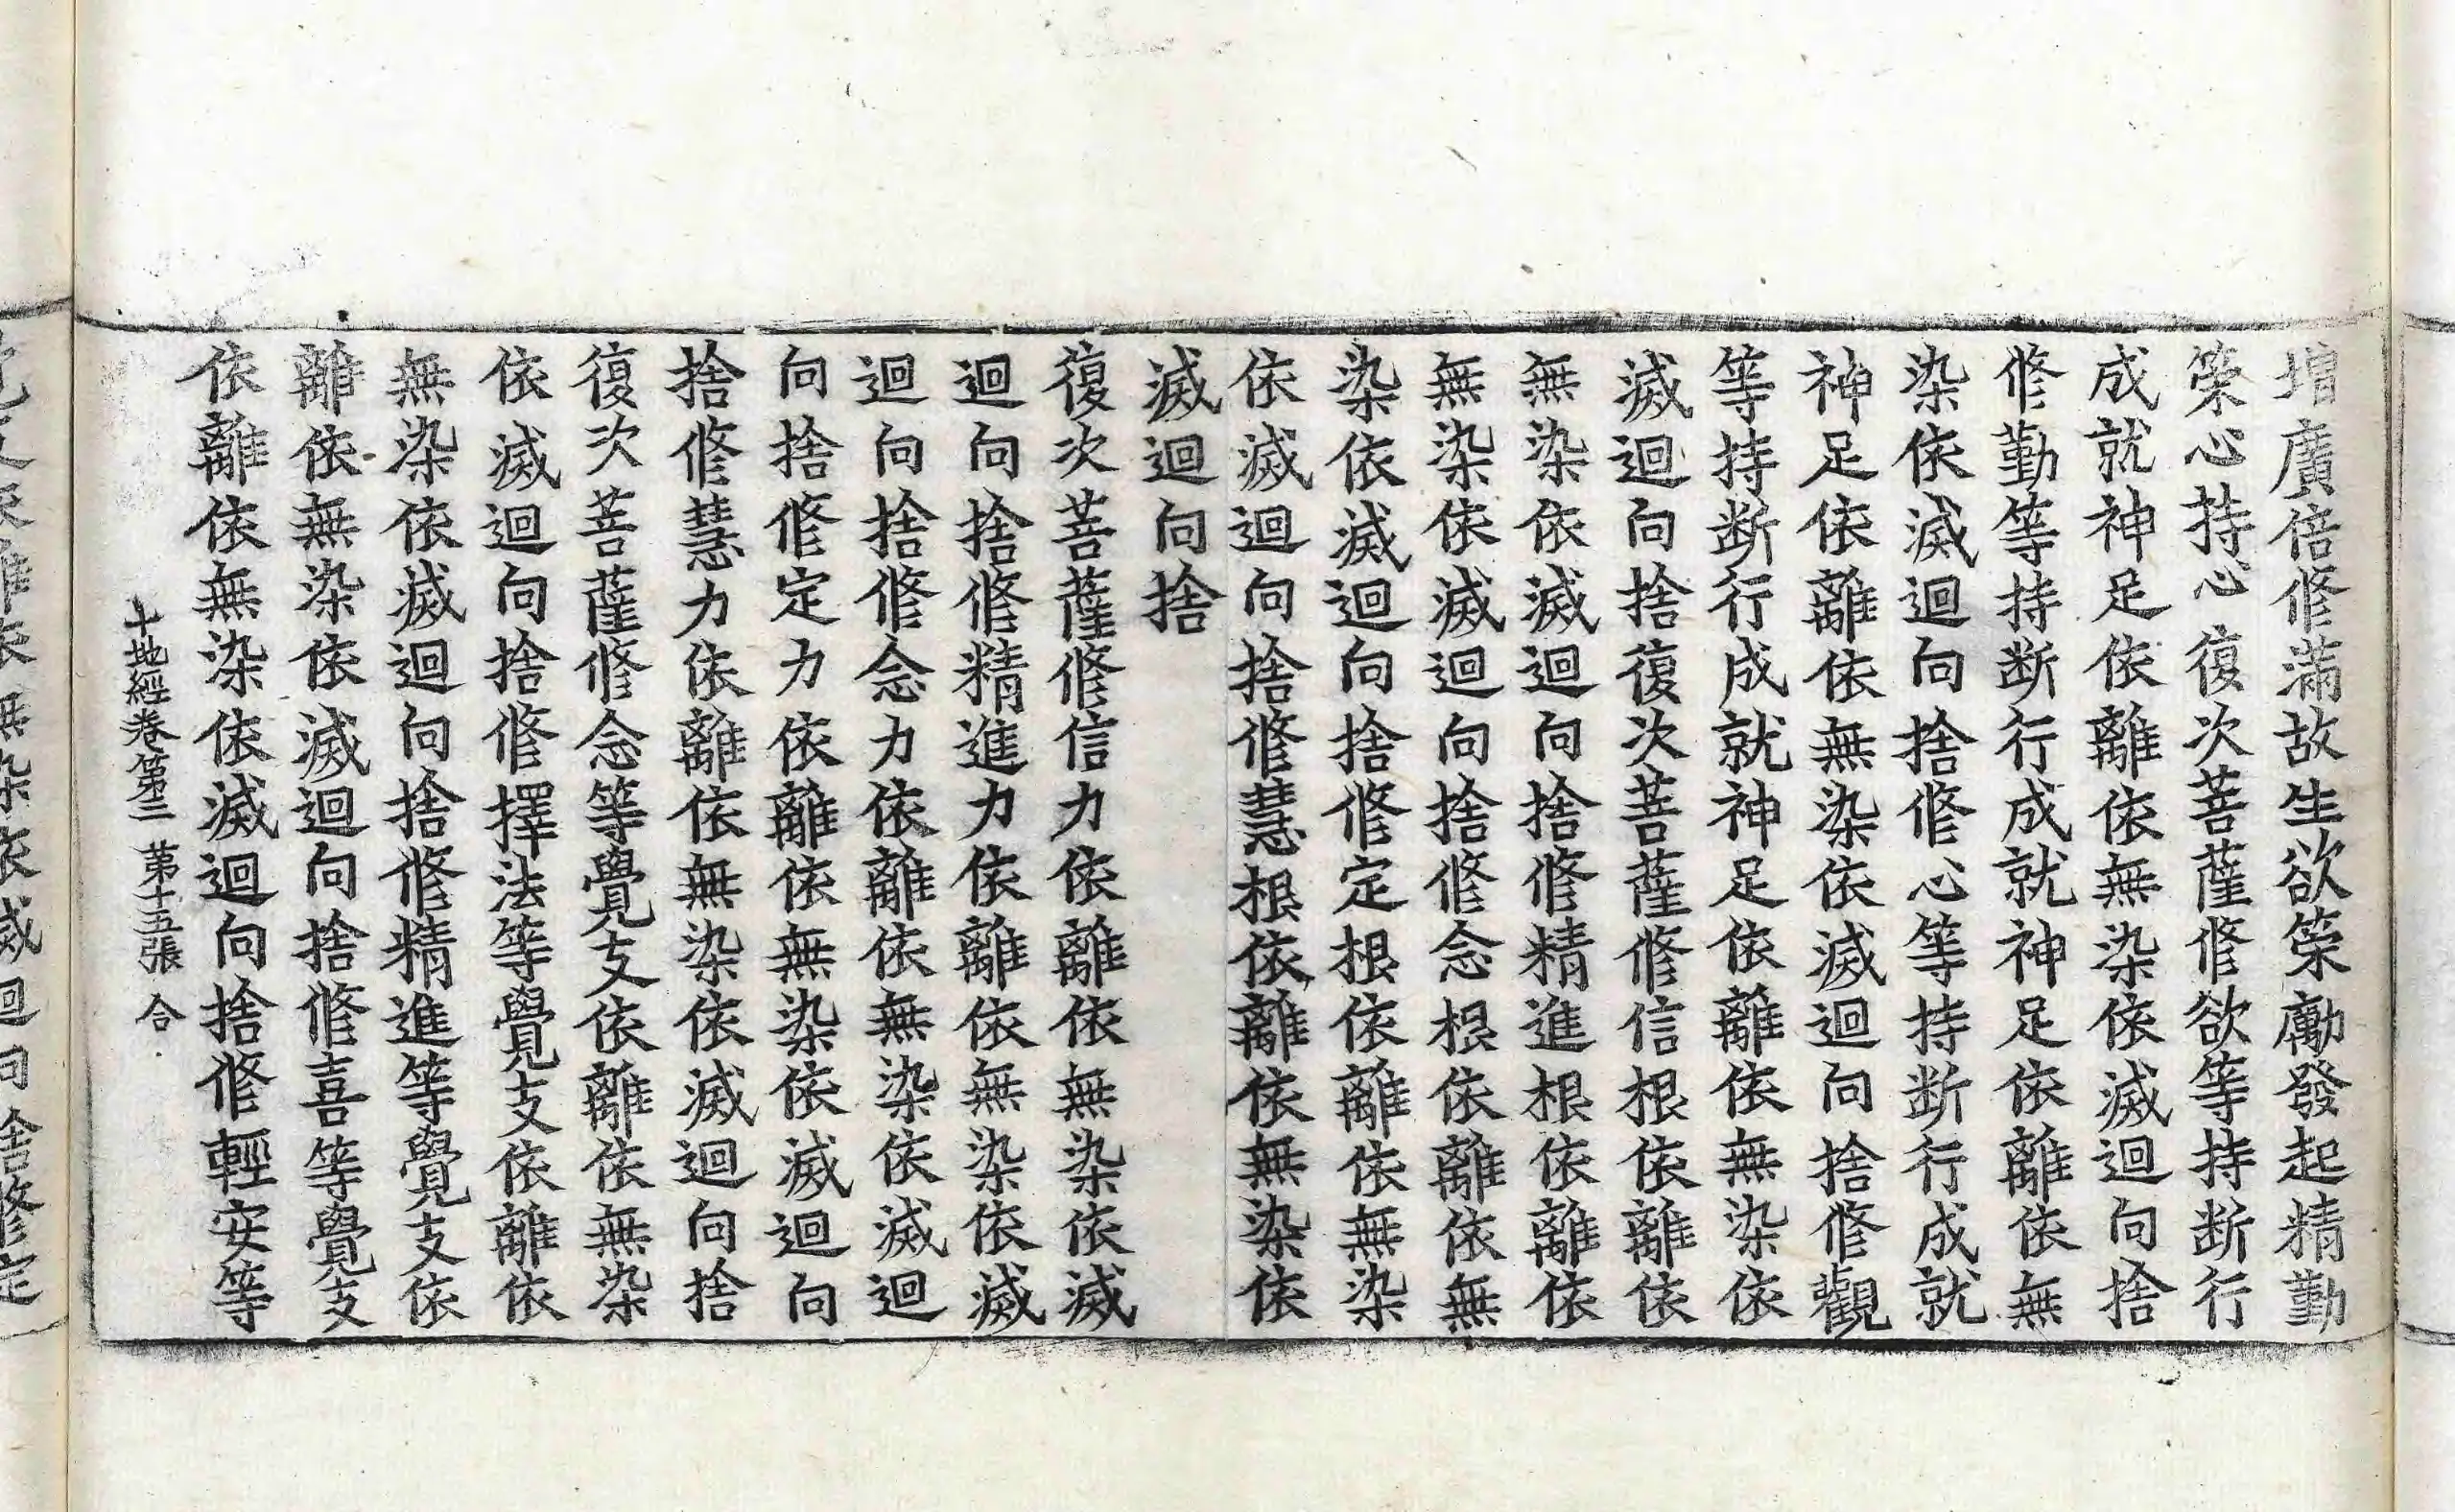 增廣倍修滿故生欲策勵發起精勤
策心持心復次菩薩修欲等持断行
成就神足依離依無染依滅迴向捨
修勤等持断行成就神足依離依無
染依滅迴向捨修心等持断行成就
神足依離依無染依滅迴向捨修觀
等持断行成就神足依離依無染依
滅迴向捨復次菩薩修信根依離依
無染依滅迴向捨修精進根依離依
無染依滅迴向捨修念根依離依無
染依滅迴向捨修定根依離依無染
依滅迴向捨修慧根依離依無染依
滅迴向捨
復次菩薩修信力依離依無染依滅
迴向捨修精進力依離依無染依滅
迴向捨修念力依離依無染依滅迴
向捨修定力依離依無染依滅迴向
捨修慧力依離依無染依滅迴向捨
復次菩薩修念等覺支依離依無染
依滅迴向捨修擇法等覺支依離依
無染依滅迴向捨修精進等覺支依
離依無染依滅迴向捨修喜等覺支
依離依無染依滅迴向捨修輕安等
十地經卷第三 第十五張 合
覺支依離依無染依滅迴向捨修定